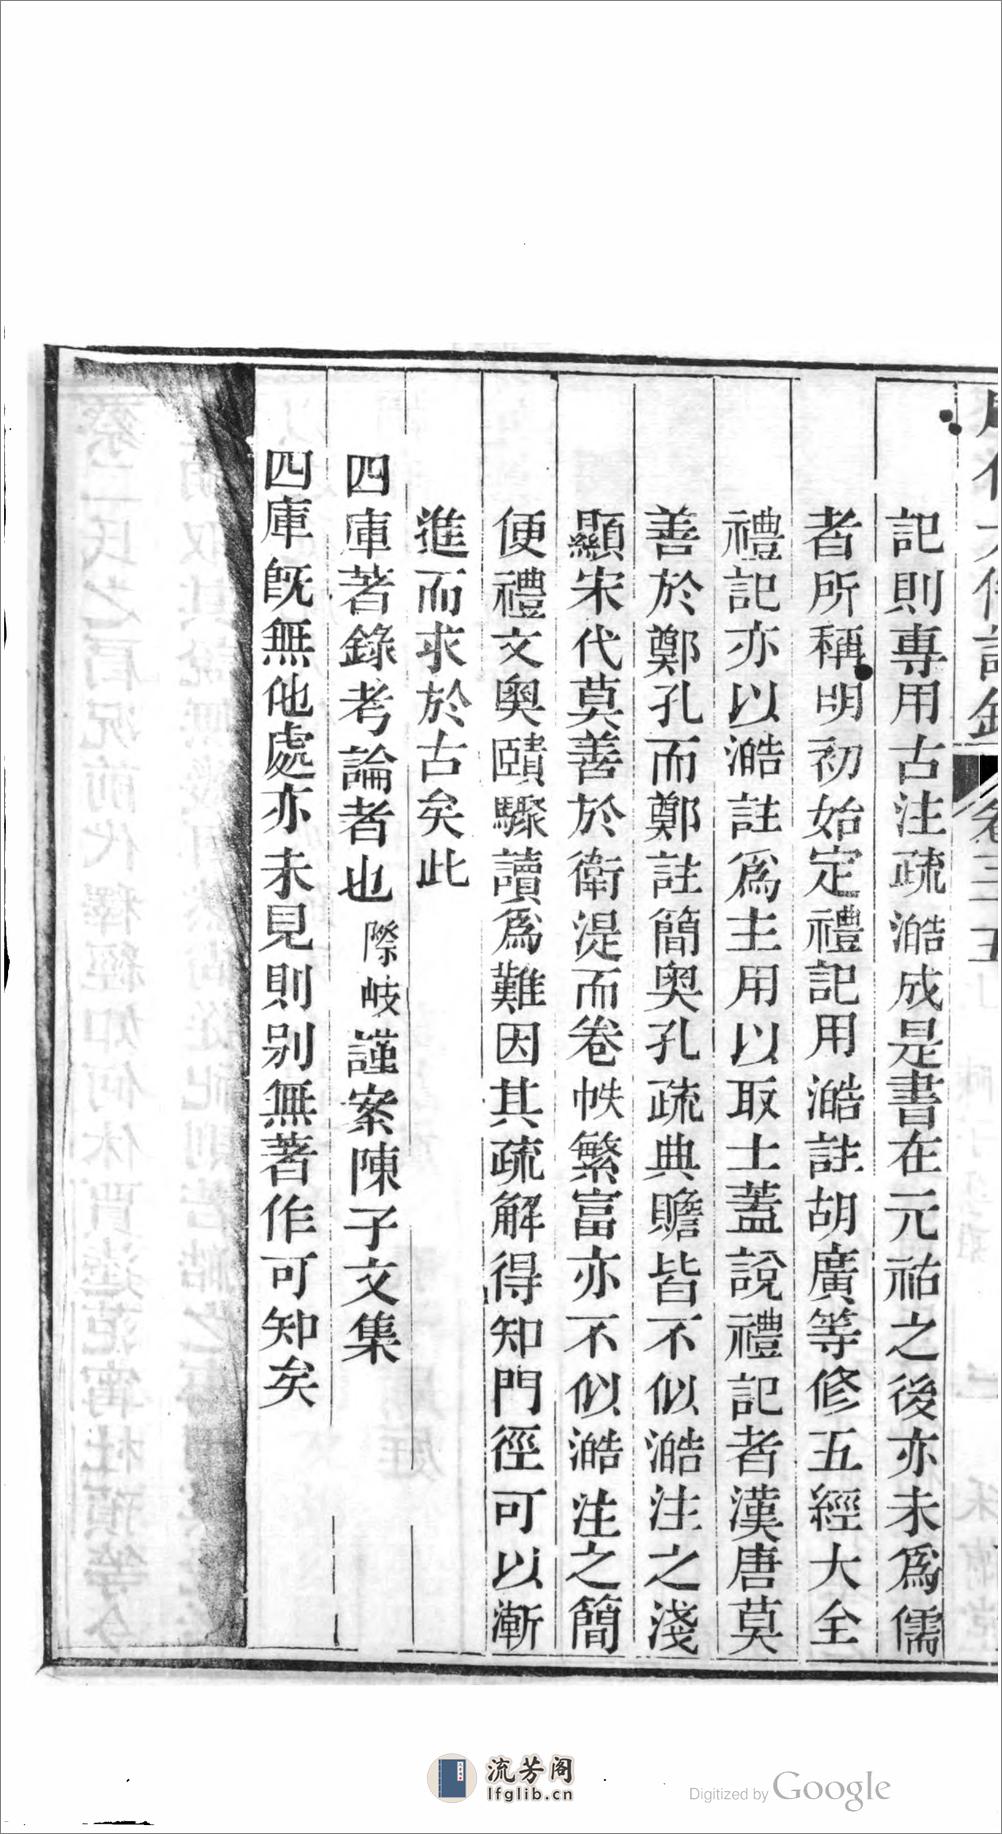 卷三十五
記則專用古注疏澔成是書在元祐之後亦未爲儒
者所稱明初始定禮記用澔註胡廣等修五經大全
禮記亦以澔註爲主用以取士蓋說禮記者漢唐莫
善於鄭孔而鄭註簡奧孔疏典贍皆不似澔注之淺
顯宋代莫善於衛湜而卷帙繁富亦不似澔注之簡
便禮文奧賾驟讀爲難因其疏解得知門徑可以漸
進而求於古矣此
四庫著錄考論者也際岐謹案陳子文集
四庫旣無他處亦未見則别無著作可知矣
流芳阁
lfglib.cn
Digitized by Google